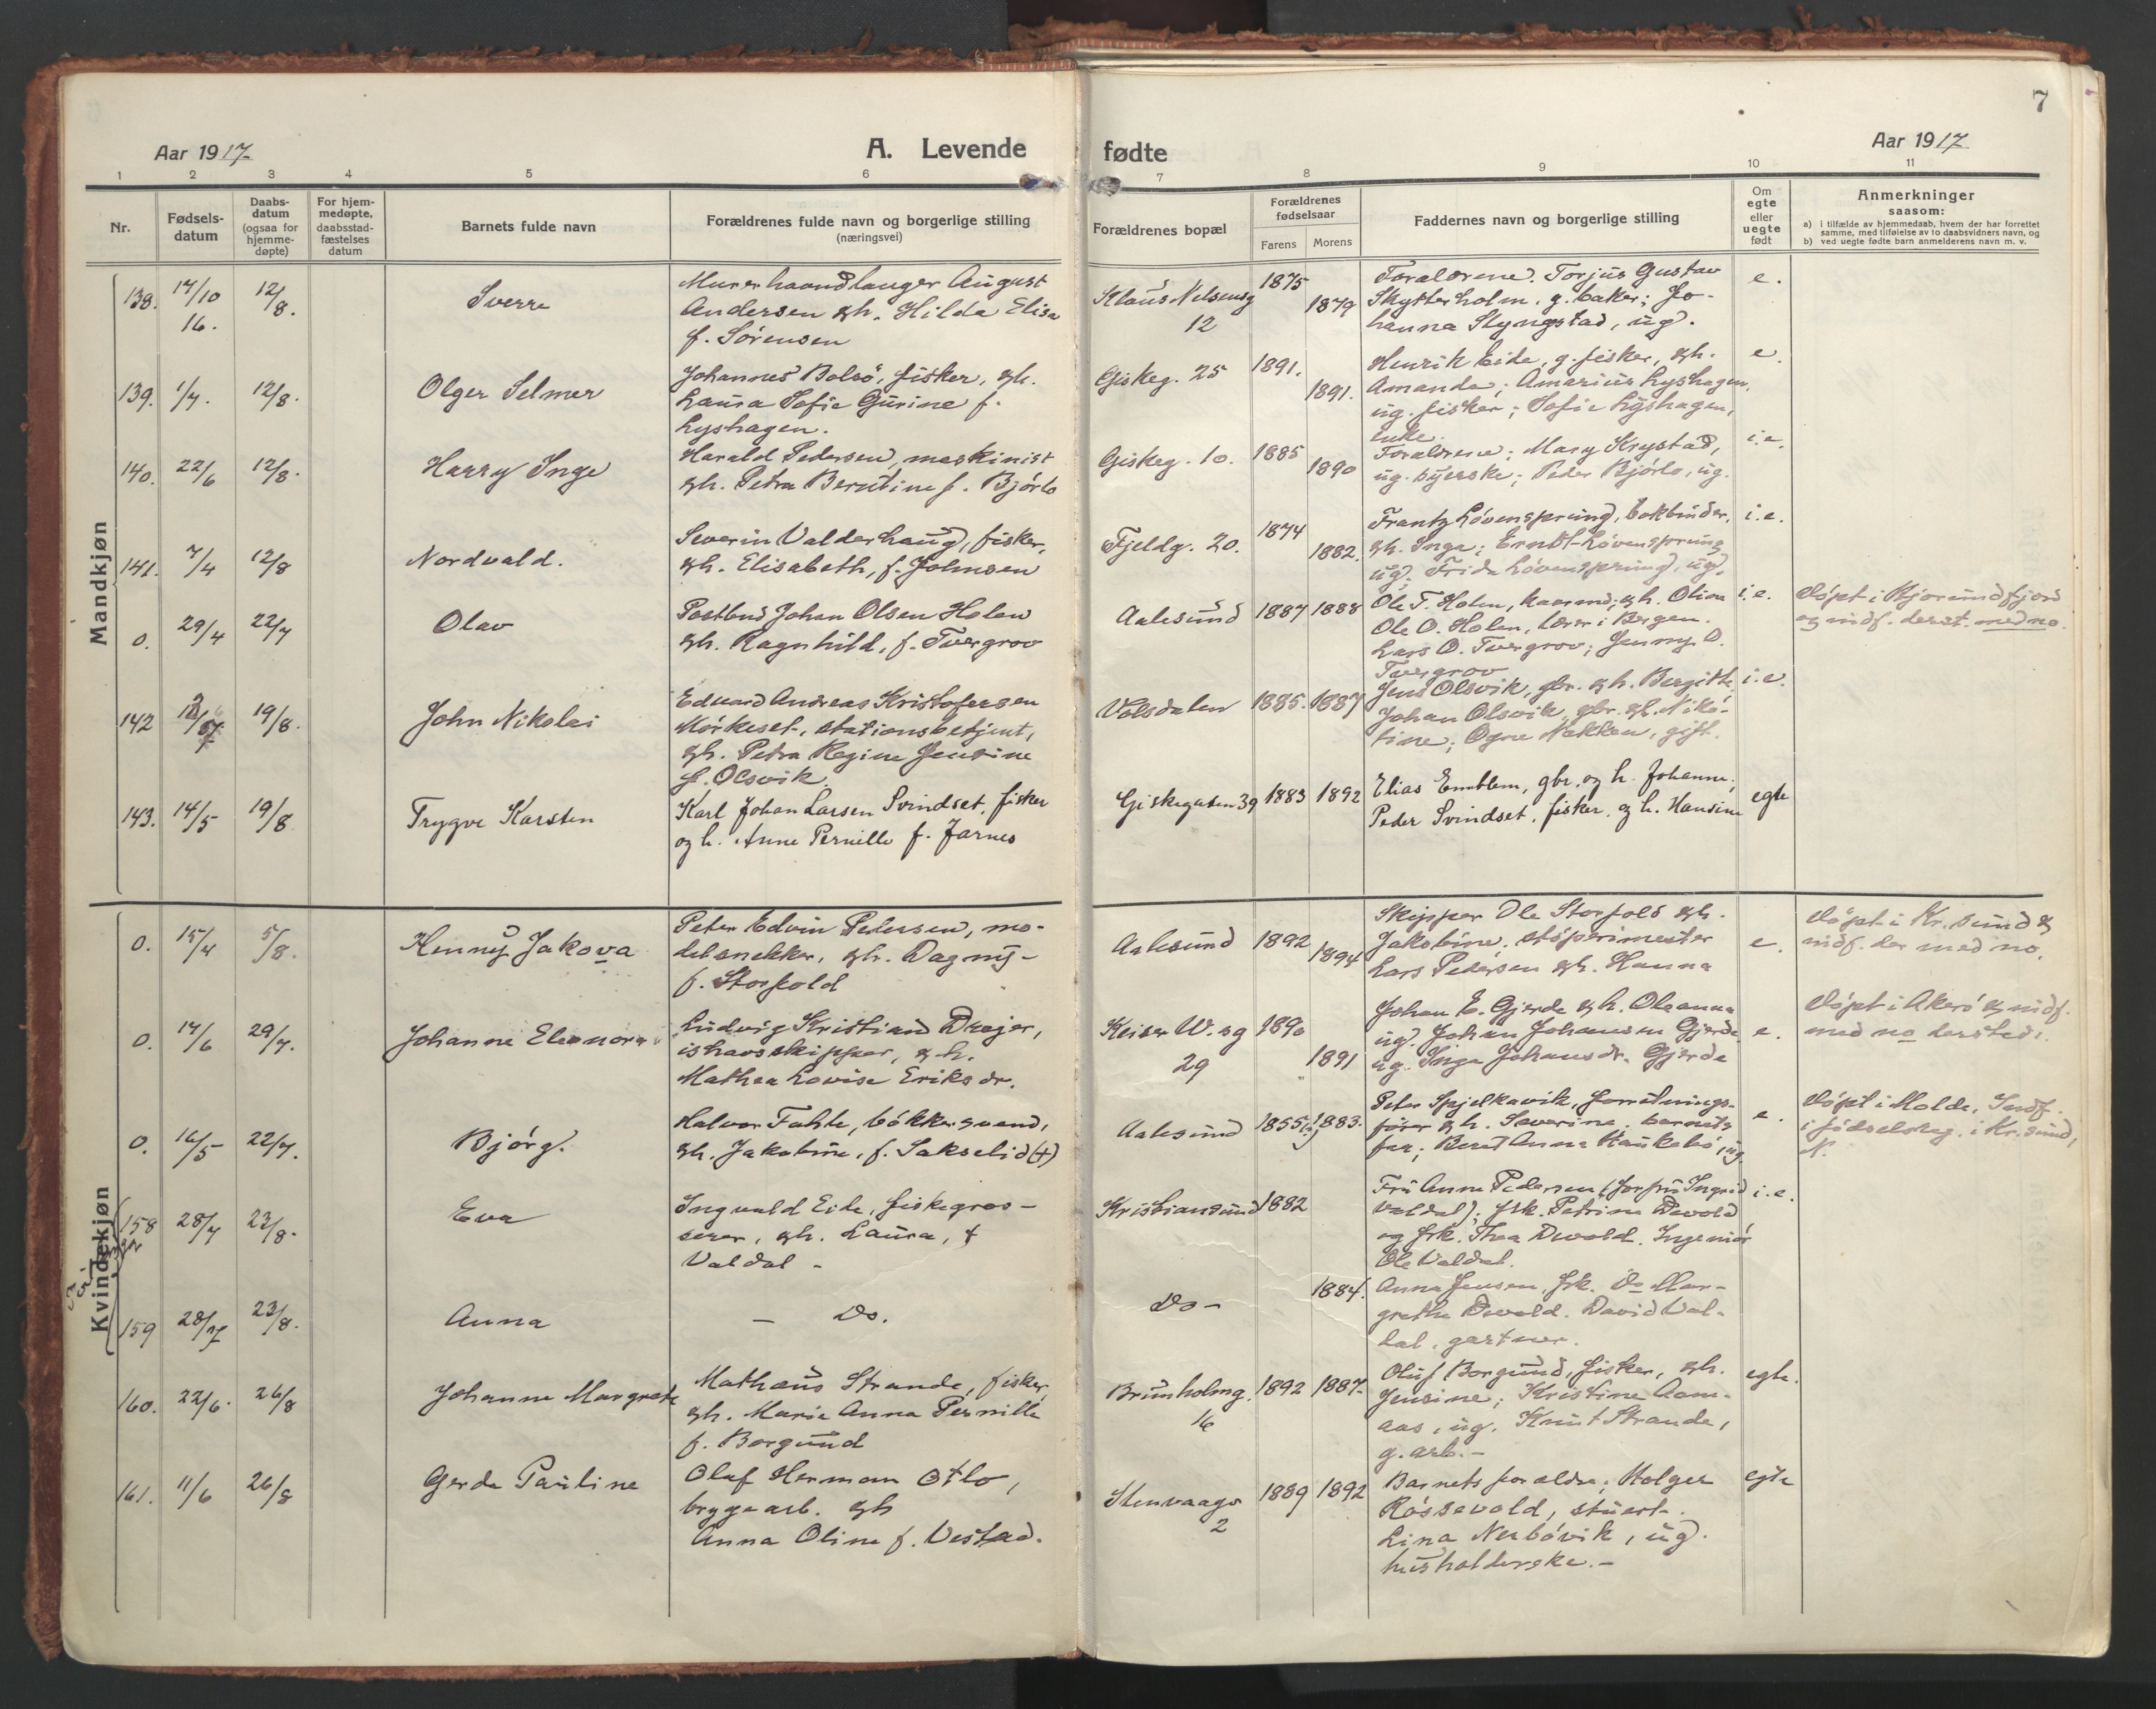 7
Aar 1917
A. Levende
fødte
Aar 1917
1 2 3 4 5 6 7 8 9 10 11
Nr.
Fødsels-
datum
Daabs-
datum
(ogsaa for
hjemme-
døpte)
For hjem-
medøpte,
daabsstad-
fæstelses
datum
Barnets fulde navn
Forældrenes fulde navn og borgerlige stilling
(næringsvei)
Forældrenes bopæl
Forældrenes
fødselsaar
Farens Morens
Faddernes navn og borgerlige stilling
Om
egte
eller
uegte
født
Anmerkninger
saasom:
a) i tilfælde av hjemmedaab, hvem der har forrettet
samme, med tilføielse av to daabsvidners navn, og
b) ved uegte fødte barn anmelderens navn m. v.
Mandkjøn
138. 17/10 16. 12/8. Sverre
Murerhaandlanger August
Andersen gh. Hilda Elisa
f. Sørensen
Klaus Nilsensg
12
1875 1879
Forældrene. Torjus Gustav
Skytterholm, g. baker; Jo-
hanna Slyngstad, ug.
e.
139. 1/7. 12/8. Olger Selmer
Johannes Bolsö, fisker, gh.
Laura Sofie Gurine f.
Lyshagen.
Giskeg. 25 1891. 1891.
Henrik Eide, g. fisker, gh.
Amanda; Amarius Lyshagen,
ug. fisker; Sofie Lyshagen,
enke.
e.
140. 22/6 12/8. Harry Inge
Harald Pedersen, maskinist
gh. Petra Berntine f. Bjórlo
Giskeg. 10. 1885 1890
Forældrene; Mary Krystad,
ug. syerske; Peder Bjórlo, ug.
i.e.
141. 7/4 12/8 Nordvald.
Severin Valderhaug, fisker,
gh. Elisabeth, f. Johnsen
Fjeldg. 20. 1874 1882.
Frantz Lóvensprung, bokbinder,
gh. Inga; Ernst Lóvensprung
ug. Frida Lóvensprung, ug.
i.e.
0. 29/4 22/7 Olav
Postbud Johan Olsen Holen
gh. Ragnhild, f. Tvergrov
Aalesund 1887 1888
Ole T. Holen, kaarmd; gh. Olina
Ole O. Holen, lærer i Bergen.
Lars O. Tvergrov; Jenny O.
Tvergrov
i.e.
Dópt i Hjorundfjord
og indf. derst. med no.
142 19/8. John Nikolai
Edvard Andreas Kristofersen
Mórkeset, stationsbetjent,
gh. Petra Regine Jensine
f. Olsvik
Volsdalen 1885. 1887
Jens Olsvik, gbr. gh. Bergitte
Johan Olsvik, gbr. gh. Niko-
line; Ogne Nakken, gift.
i.e.
143. 14/5 19/8 Trygve Karsten
Karl Johan Larsen Svindset, fisker
og h. Anne Pernille f. Jarnes
Giskegaten 39 1883 1892
Elias Emblem, gbr. og h. Johanne,
Peder Svindset, fisker, og h. Hansine
egte
Kvindekjøn
0. 15/4 5/8. Henny Jakova
Peter Edvin Pedersen, mo-
delsnekker, gh. Dagny
f. Storfold
Aalesund 1892 1894
Skipper Ole Storfold gh.
Jakobine. stóperimester
Lars Pedersen gh. Hanna
e.
Dópt i Kr.sund &
indf. der med no.
0. 17/6 29/7. Johanne Eleonora
Ludvig Kristian Drejer,
ishavsskipper, gh.
Mathea Lovise Eriksdr.
Keiser W.sg
29
1890 1891
Johan E. Gjerde gh. Oleanna
ug. Johan Johansen Gjerde
ug. Inga Johansdr. Gjerde
e.
Dópt i Akeró & indf.
med no dersteds.
0. 16/5 22/7. Bjórg.
Halvor Tafte, bókkersvend,
gh. Jakobine, f. Sakselid (+)
Aalesund 1855 1883.
Peter Spjelkavik, forretnings-
fører gh. Severine, barnets
far; Beret Anna Haukebó, ug.
e.
Dópt i Molde. Indf.
i fódselsreg. i Kr.sund,
N.
158 28/7 23/8. Eva
Ingvald Eide, fiskegros-
serer, gh. Laura, f
Valdal
Kristiansund 1882
Fru Anna Pedersen (for fru Ingrid
Valdal); frk. Petrine Devold
og frk. Thea Devold. Ingeniór
Ole Valdal.
i.e.
159 28/7 23/8. Anna
– Do.
Do – 1884.
Anna Jensen, frk. Do Mar-
grethe Devold. David Val-
dal, gartner.
160. 22/6. 26/8 Johanne Margrete
Mathæus Strande, fisker,
gh. Marie Anna Pernille
f. Borgund
Brunholmg.
16
1892 1887.
Oluf Borgund, fisker, gh.
Jensine; Kristine Aam-
aas, ug. Knut Strande,
g. arb. –
egte.
161. 11/6 26/8 Gerda Pauline
Olaf Herman Otlo,
bryggearb. gh
Anna Oline f. Vestad.
Stenvaagv
2
1889 1892
Barnets forældre; Holger
Róssevold, stuert.
Lina Nerbóvik, ug.
husholderske. –
egte